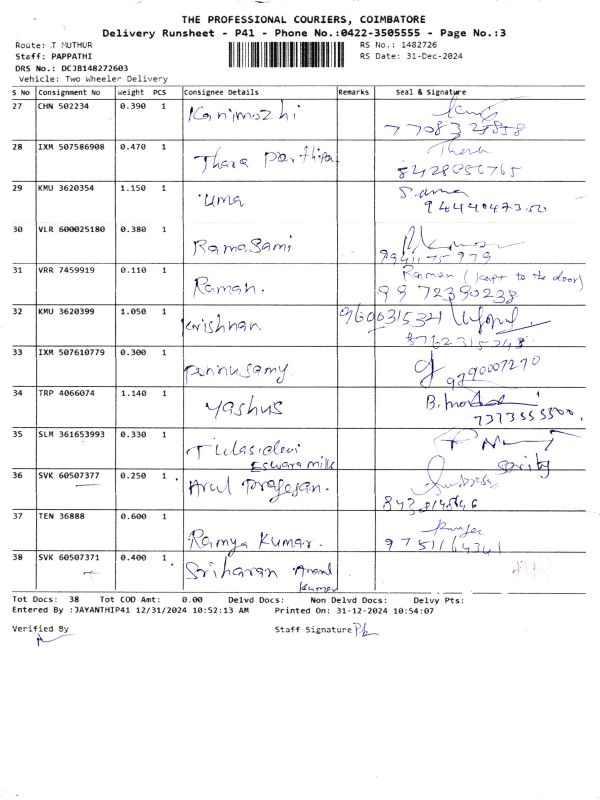 THE PROFESSIONAL COURIERS, COIMBATORE
Delivery Runsheet - P41 - Phone No.:0422-3505555 - Page No.:3
Route: .T MUTHUR
RS No.: 1482726
Staff: PAPPATHI
RS Date: 31-Dec-2024
DRS No.: DCJB148272603
Vehicle: Two Wheeler Delivery
S No Consignment No Weight PCS Consignee Details Remarks Seal & Signature
27 CHN 502234 0.390 1 Kanimozhi
28 IXM 507586908 0.470 1 Thara Parthipa
29 KMU 3620354 1.150 1 Uma S.uma
30 VLR 600025180 0.380 1 Ramasami
9941175979
31 VRR 7459919 0.110 1 Raman. Raman (kept to the door)
9972390238
32 KMU 3620399 1.050 1 Krishnan. 9600315341
33 IXM 507610779 0.300 1 Ponnusamy. 9790007270
34 TRP 4066074 1.140 1 Yashus
7373555500.
35 SLM 361653993 0.330 1 Tulasidevi
Eswara mills
36 SVK 60507377 0.250 1 Arul Pragasan.
37 TEN 36888 0.600 1 Ramya Kumar. 9751164341
38 SVK 60507371 0.400 1 Sriharan Anand
Kumar
Tot Docs: 38 Tot COD Amt: 0.00 Delvd Docs: Non Delvd Docs: Delvy Pts:
Entered By :JAYANTHIP41 12/31/2024 10:52:13 AM Printed On: 31-12-2024 10:54:07
Verified By Staff Signature